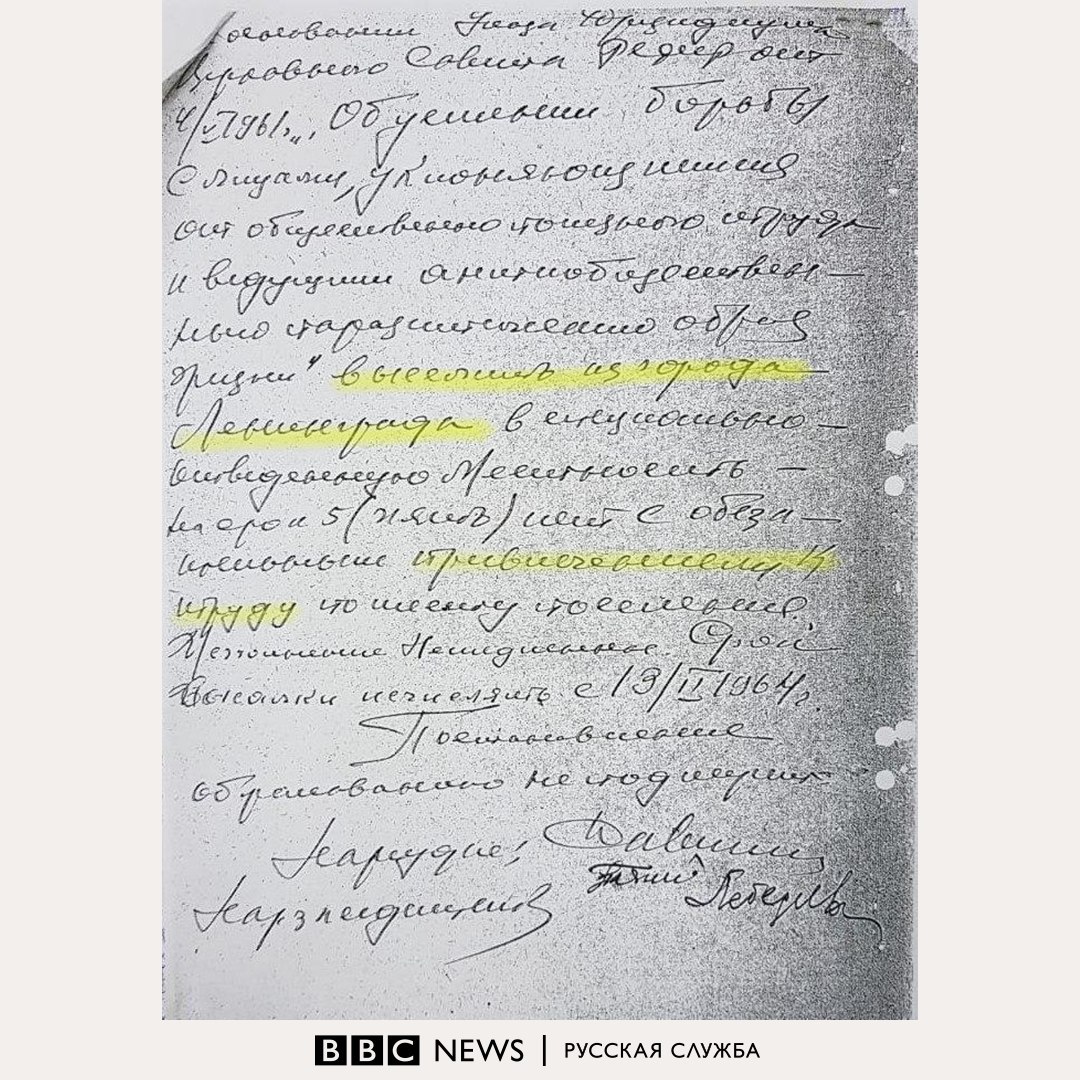 основании Указа Президиума
Верховного Совета РСФСР от
4/V-1961г. "Об усилении борьбы
с лицами, уклоняющимися
от общественно полезного труда
и ведущими антиобществен-
ный паразитический образ
жизни" выселить из города
Ленинграда в специально-
отведенную местность -
на срок 5 (пять) лет с обяза-
тельным привлечением к
труду по месту поселения.
Исполнение немедленное. Срок
высылки исчислять с 13/II 1964г.
Постановление
обжалованию не подлежит
Нарсудья
Нарзаседатели Лебедева
BBC NEWS | РУССКАЯ СЛУЖБА